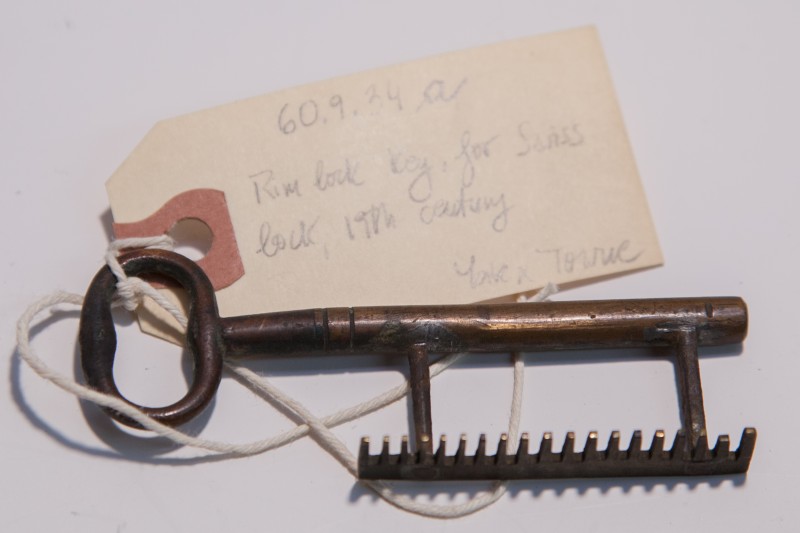 60.9.24 a
Rim lock key, for Swiss
lock, 19th century
Yale & Towne